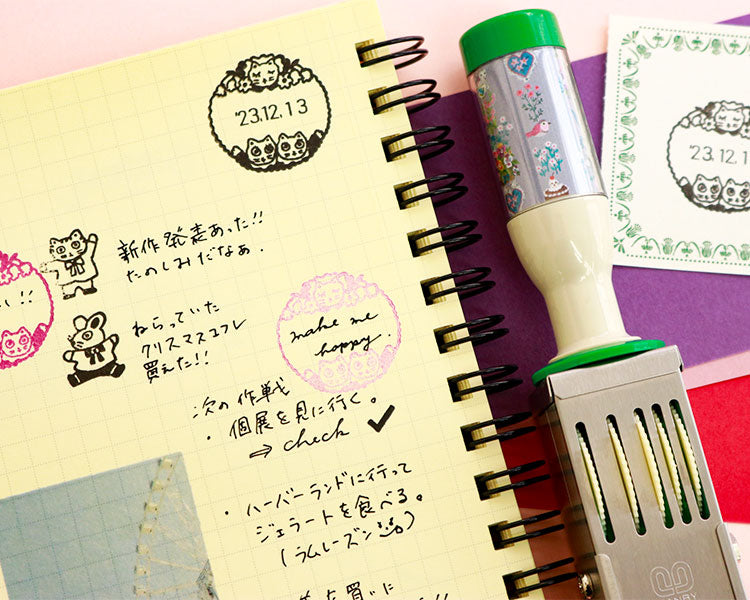 '23.12.13
'23.12.13
い!!
新作発表あった!!
たのしみだなぁ.
ねらっていた
クリスマスコフレ
買えた!!
make me
happy.
次の作戦
・個展を見に行く。
⇒ check ✓
・ハーバーランドに行って
ジェラートを食べる。
(ラムレーズン)
を買いに